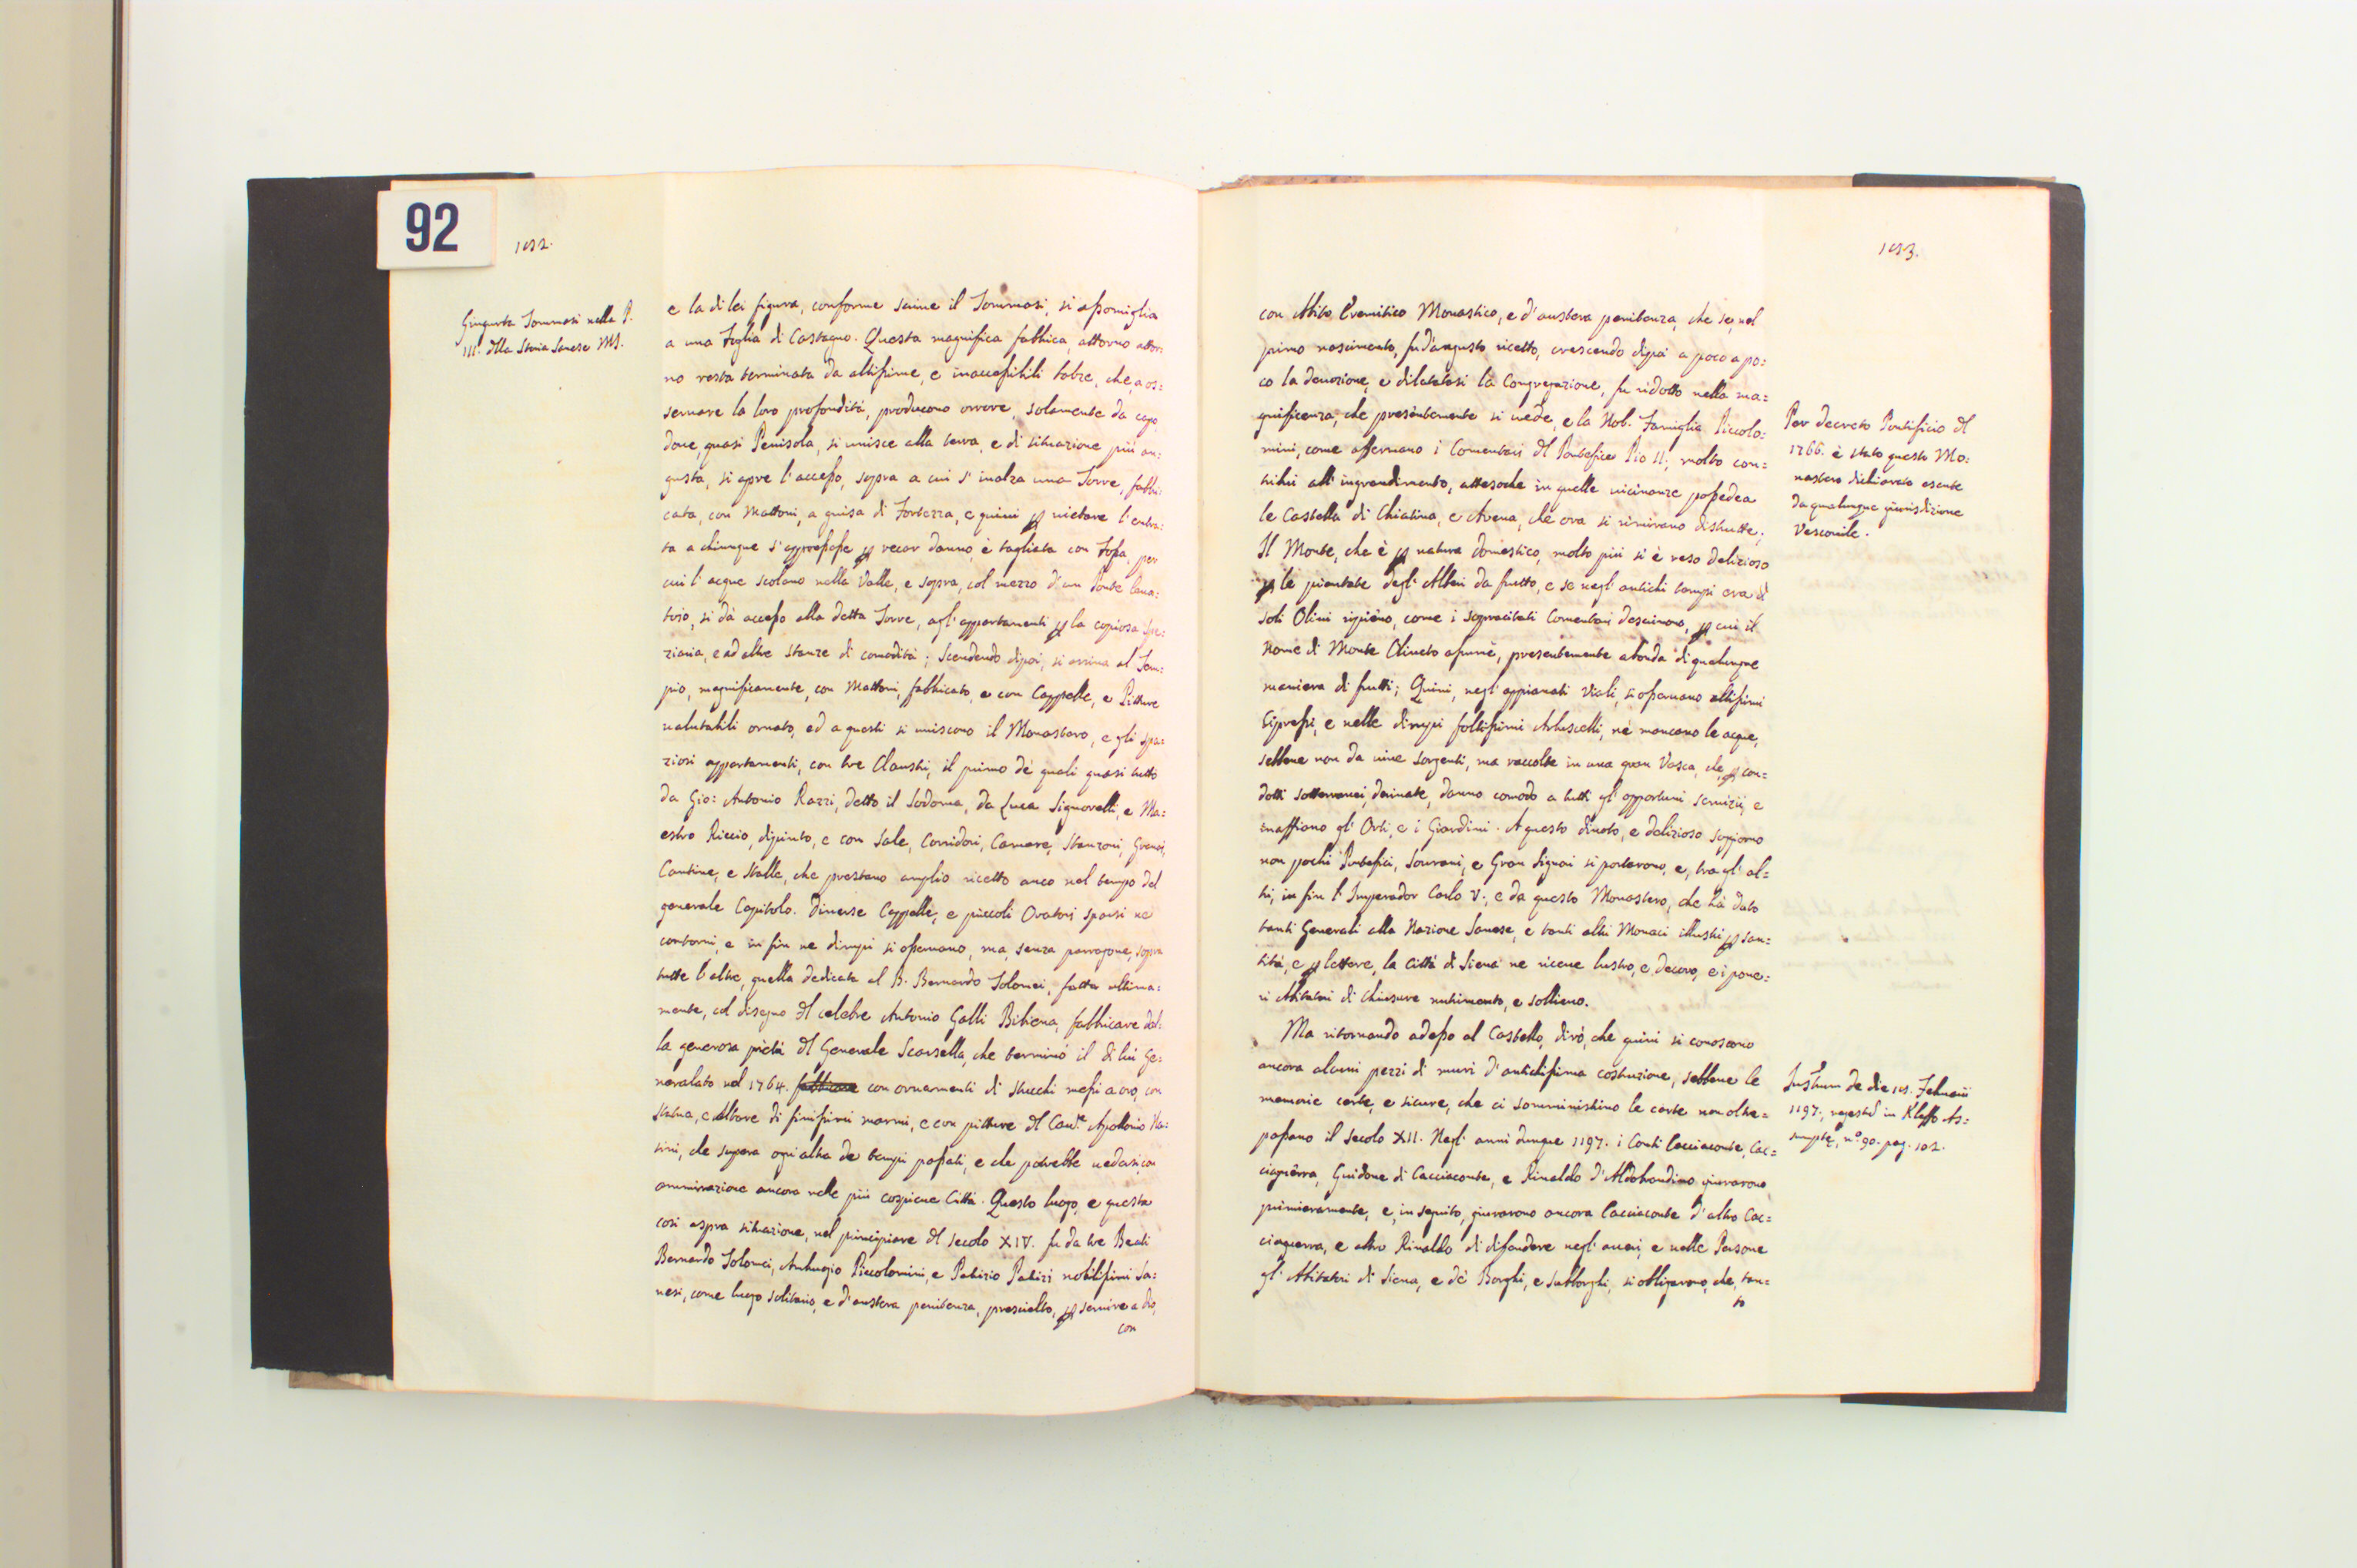 92
152.
Giugurta Tommasi nella P.
III. della Storia Sanese MS.
e la di lei figura, conforme scrive il Tommasi, si assomiglia
a una Foglia di Castagno. Questa magnifica fabbrica, attorno attor=
no resta terminata da altissime, e inaccessibili balze, che, a os=
servare la loro profondità, producono orrore, solamente da capo
dove, quasi Penisola, si unisce alla terra, e di situazione più an=
gusta, si apre l'accesso, sopra a cui s'inalza una Torre, fabbri=
cata, con Mattoni, a guisa di Fortezza, e quivi p vietare l'entra=
ta a chiunque s'appressasse p recar danno, è tagliata con Fossa, per
cui l'acque scolano nella Valle, e sopra, col mezzo d'un Ponte leva=
tojo, si dà accesso alla detta Torre, agl'appartamenti p la copiosa Spe=
zieria, e ad altre stanze di comodità; Scendendo dipoi, si arriva al Tem=
pio, magnificamente, con Mattoni, fabbricato, e con Cappelle, e Pitture
valutabili ornato, ed a questi si uniscono il Monastero, e gli spa=
ziosi appartamenti, con tre Claustri, il primo de quali quasi tutto
da Gio: Antonio Razzi, detto il Sodoma, da Luca Signorelli, e Ma=
estro Riccio, dipinto, e con Sale, Corridori, Camere, Stanzoni, Granai,
Cantine, e Stalle, che prestano amplio ricetto anco nel tempo del
generale Capitolo. Diverse Cappelle, e piccoli Oratorj sparsi ne
contorni, e in fin ne dirupi si osservano, ma, senza parragone, sopra
tutte l'altre, quella dedicata al B. Bernardo Tolomei, fatta ultima=
mente, col disegno del celebre Antonio Galli Bibiena, fabbricare dal=
la generosa pietà del Generale Scarselli, che terminò il di lui Ge=
neralato nel 1764. fabbricare con ornamenti di stucchi messi a oro, con
statua, e Altare di finissimi marmi, e con pitture del Cav.re Apollonio Na=
sini, che supera ogni altra de tempi passati, e che potrebbe vedersi, con
ammirazione ancora nelle più cospicue Città. Questo luogo, e questa
così aspra situazione, nel principiare del secolo XIV. fu da tre Beati
Bernardo Tolomei, Ambrogio Piccolomini, e Patrizio Patrizi nobilissimi Sa=
nesi, come luogo solitario, e d'austera penitenza, prescielto, p servire a Dio,
con
153.
con Abito Eremitico Monastico, e d'austera penitenza, che se, nel
primo nascimento, fu d'angusto ricetto, crescendo dipoi a poco a po=
co la devozione, e dilatatasi la Congregazione, fu ridotto nella ma=
gnificenza, che presentemente si vede, e la Nob. Famiglia Piccolo=
mini, come asservano i Comentari del Pontefice Pio II; molto con=
tribuì all'ingrandimento, attesoche in quelle vicinanze possedea
le Castella di Chiatina, e Avena, che ora si rimirano distrutte;
Il Monte, che è p natura domestico, molto più si è reso delizioso
p le piantate degl'Alberi da frutto, e se negl'antichi tempi era di
soli Olivi ripieno, come i sopracitati Comentari descrivono, p cui il
Nome di Monte Oliveto assunse, presentemente abonda di qualunque
maniera di frutti; Quivi, negl'appianati Viali, si osservano altissimi
Cipressi, e nelle dirupi foltissimi Arboscelli, nè mancano le acque,
sebbene non da vive Sorgenti, ma raccolte in una gran Vasca, che, p con=
dotti sotterranei, derivate, danno comodo a tutti gl'opportuni servizii, e
inaffiano gl'Orti, e i Giardini. A questo divoto, e delizioso soggiorno
non pochi Pontefici, Sovrani, e Gran Signori si portarono, e, tra gl'al=
tri, in fin l'Imperador Carlo V., e da questo Monastero, che hà dato
tanti Generali alla Nazione Sanese, e tanti altri Monaci illustri p san=
tità, e p lettere, la Città di Siena ne riceve lustro, e decoro, e i pove=
ri Abitatori di Chiusure nutrimento, e sollievo.
Ma ritornando adesso al Castello, dirò, che quivi si conoscono
ancora alcuni pezzi di muri d'antichissima costruzione, sebbene le
memorie certe, e sicure, che ci somministrino le carte non oltre=
passano il Secolo XII. Negl'anni dunque 1197. i Conti Cacciaconte, Cac=
ciaguerra, Guidone di Cacciaconte, e Rinaldo d'Aldobrandino giurarono
primieramente, e, in seguito, giurarono ancora Cacciaconte d'altro Cac=
ciaguerra, e altro Rinaldo di difendere negl'averi, e nelle Persone
gl'Abitatori di Siena, e de' Borghi, e subborghi, si obligarono, che, tan=
to
Per decreto Pontificio del
1766. è stato questo Mo=
nastero dichiarato esente
da qualunque giurisdizione
Vescovile.
Instrum de die 15. Februarii
1197., regestrat in Kleffo As=
sumptę, n.o 90. pag. 102.